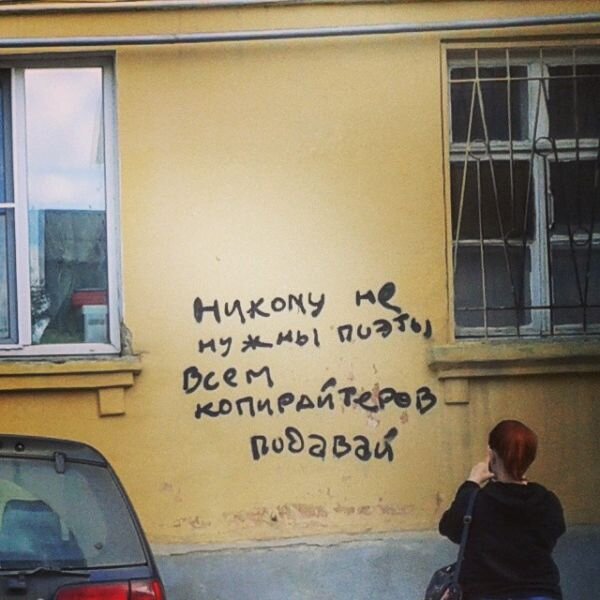 Никому не
нужны поэты
Всем
копирайтеров
подавай